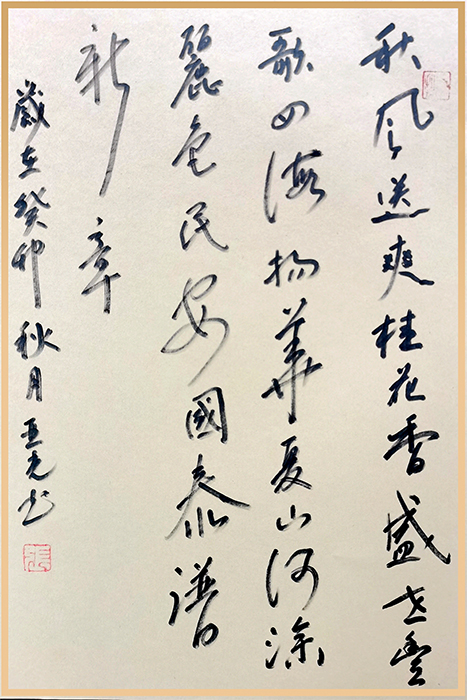 秋风送爽桂花香盛世豐
歌四海扬華夏山河添
麗色民安國泰譜
新章
歲在癸卯秋月亚光书